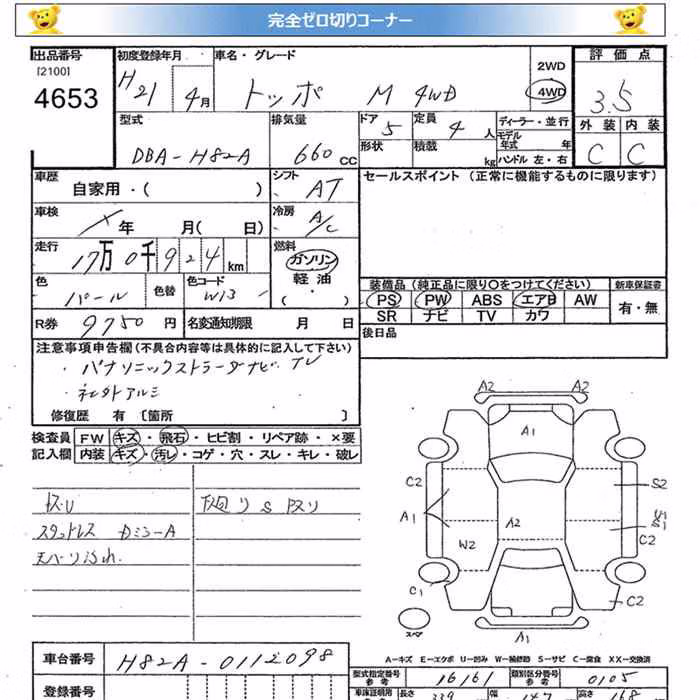 完全ゼロ切りコーナー
出品番号 初度登録年月 車名・グレード 2WD 評価点
[2100] H21 4月 トッポ M 4WD 4WD 3.5
4653
型式 排気量 ドア 定員 ディーラー・並行 外装 内装
DBA-H82A 660cc 5 4人 モデル年式 年 C C
形状 積載 kg ハンドル 左・右
車歴 自家用・( ) シフト AT セールスポイント (正常に機能するものに限ります)
車検 年 月( 日) 冷房 A/C
走行 17万0千924km 燃料 ガソリン
軽油
・( )
色 パール 色替 色コード W13 装備品 (純正品に限り○をつけてください) 新車保証書
PS PW ABS エアB AW 有・無
R券 9750円 名変通知期限 月 日 SR ナビ TV カワ
後日品
注意事項申告欄(不具合内容等は具体的に記入して下さい)
・パナソニックストラーダナビ TV
・社外アルミ
修復歴 有 [箇所 ]
検査員 FW キズ・飛石・ヒビ割・リペア跡・×要
記入欄 内装 キズ・汚レ・コゲ・穴・スレ・キレ・破レ
スタットレス Dミラ-A
A2 A2
A1
C2 S2
A1 S1
A2 C2
W2
C1 C2
スペア A1
A-キズ E-エクボ U-凹み W-補修跡 S-サビ C-腐食 XX-交換済
車台番号 H82A-0112098
型式指定番号 参考 16161 類別区分番号 参考 0105
登録番号 車庫証明用 参考 長さ 339 幅 147 高さ 168